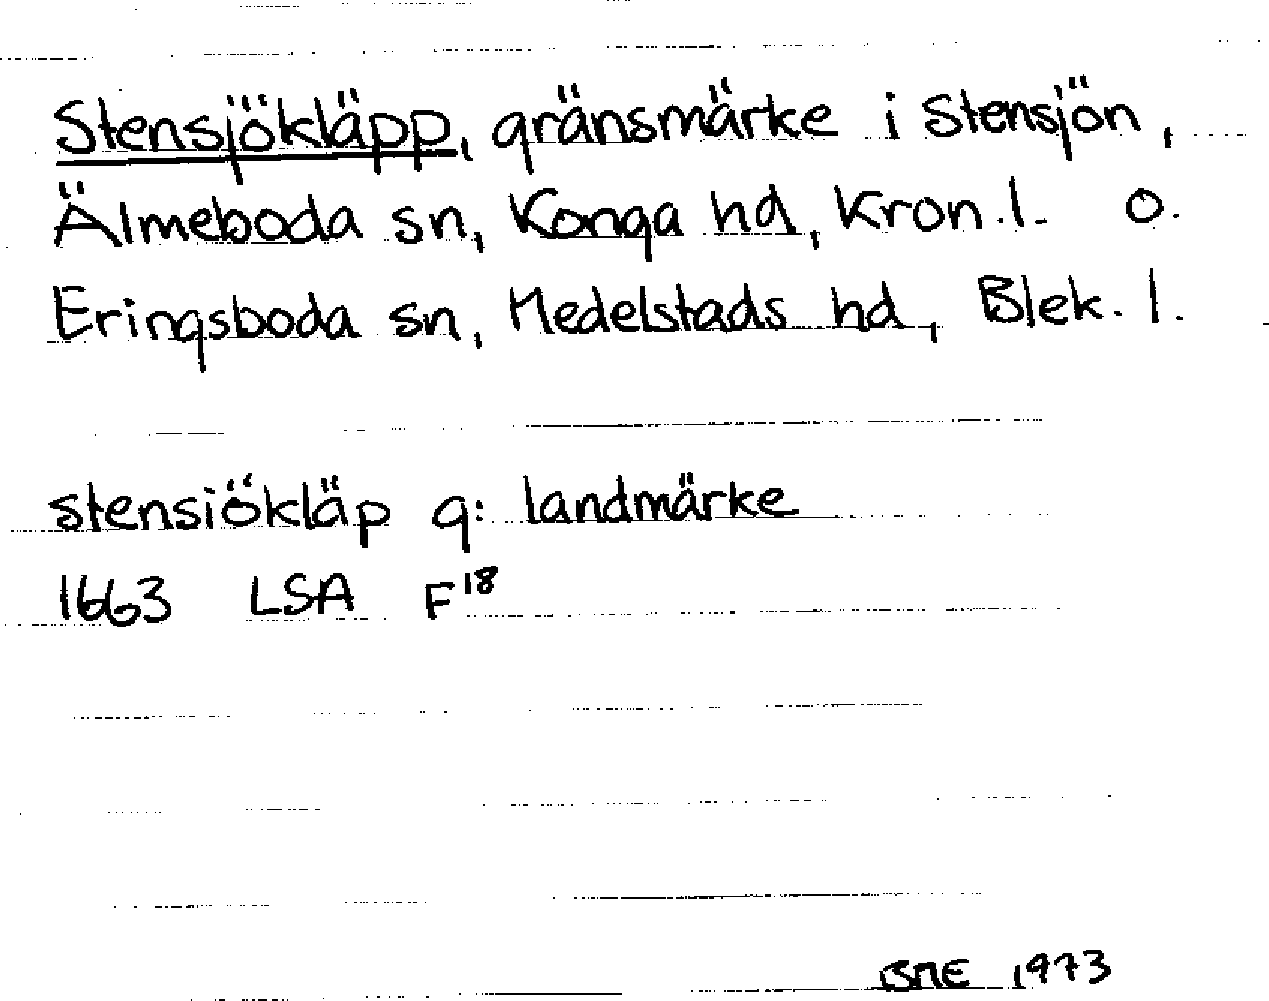 Stensjökläpp, gränsmärke i Stensjön,
Älmeboda sn, Konga hd, Kron.l. o.
Eringsboda sn, Medelstads hd, Blek. l.
stensiökläp g: landmärke
1663 LSA F18
BME 1973